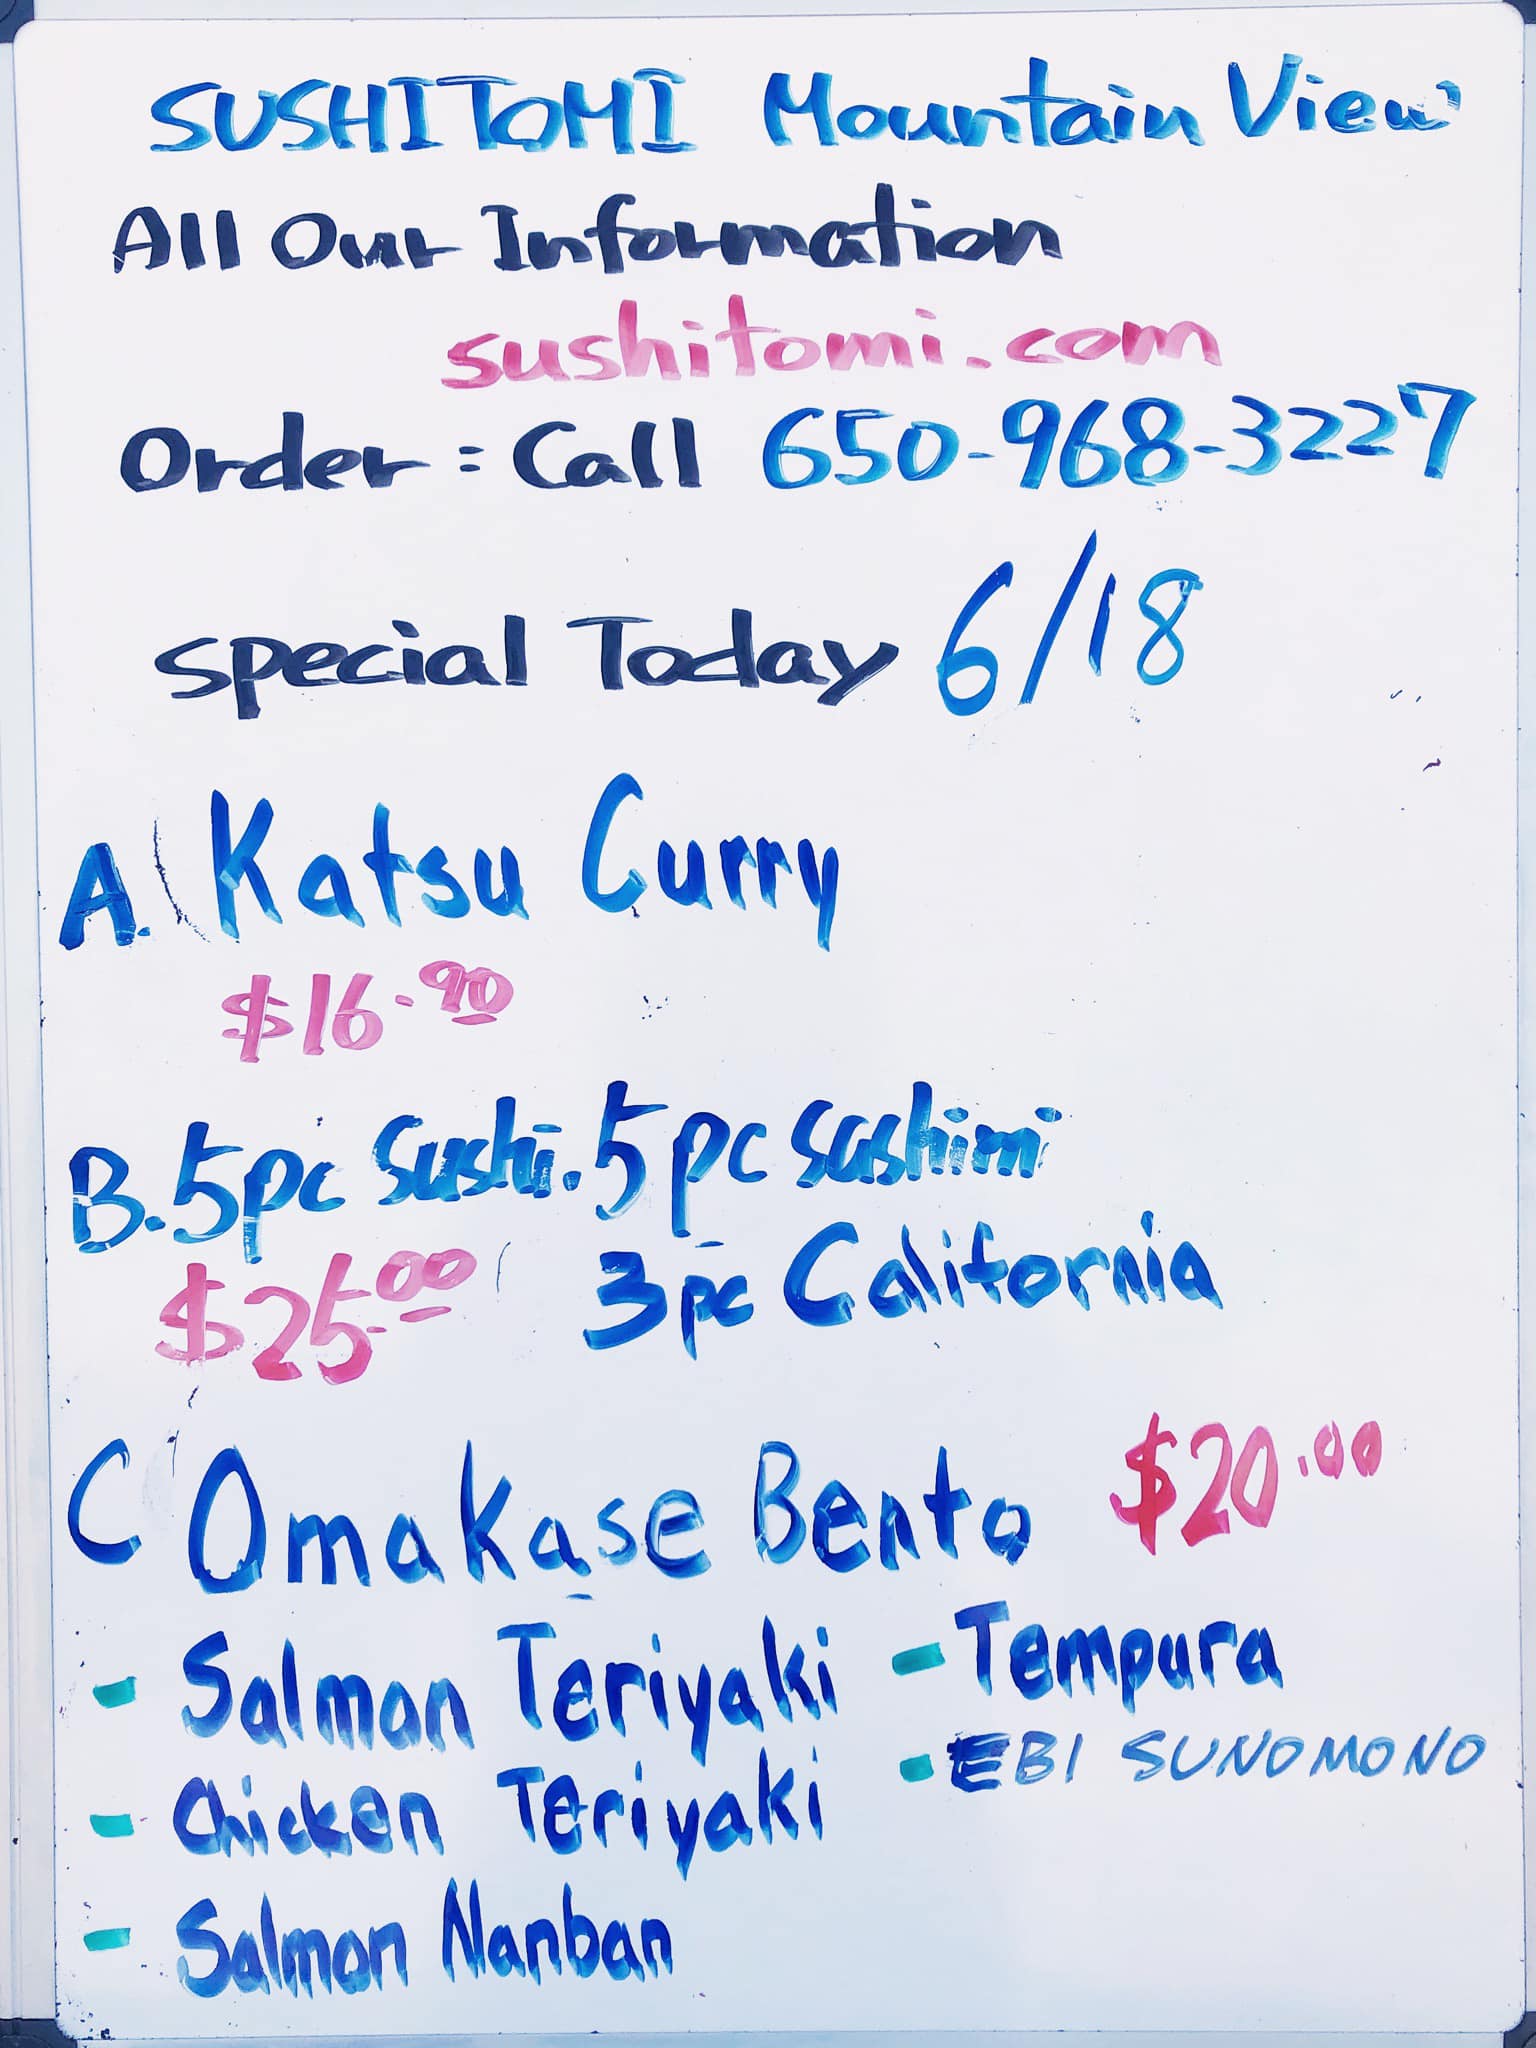 SUSHITOMI Mountain View
All Our Information
sushitomi.com
Order = Call 650-968-3227
special Today 6/18
A. Katsu Curry
$16.90
B. 5pc Sushi. 5pc sashimi
$25.00 3pc California
C Omakase Bento $20.00
- Salmon Teriyaki - Tempura
- EBI SUNOMONO
- Chicken Teriyaki
- Salmon Nanban